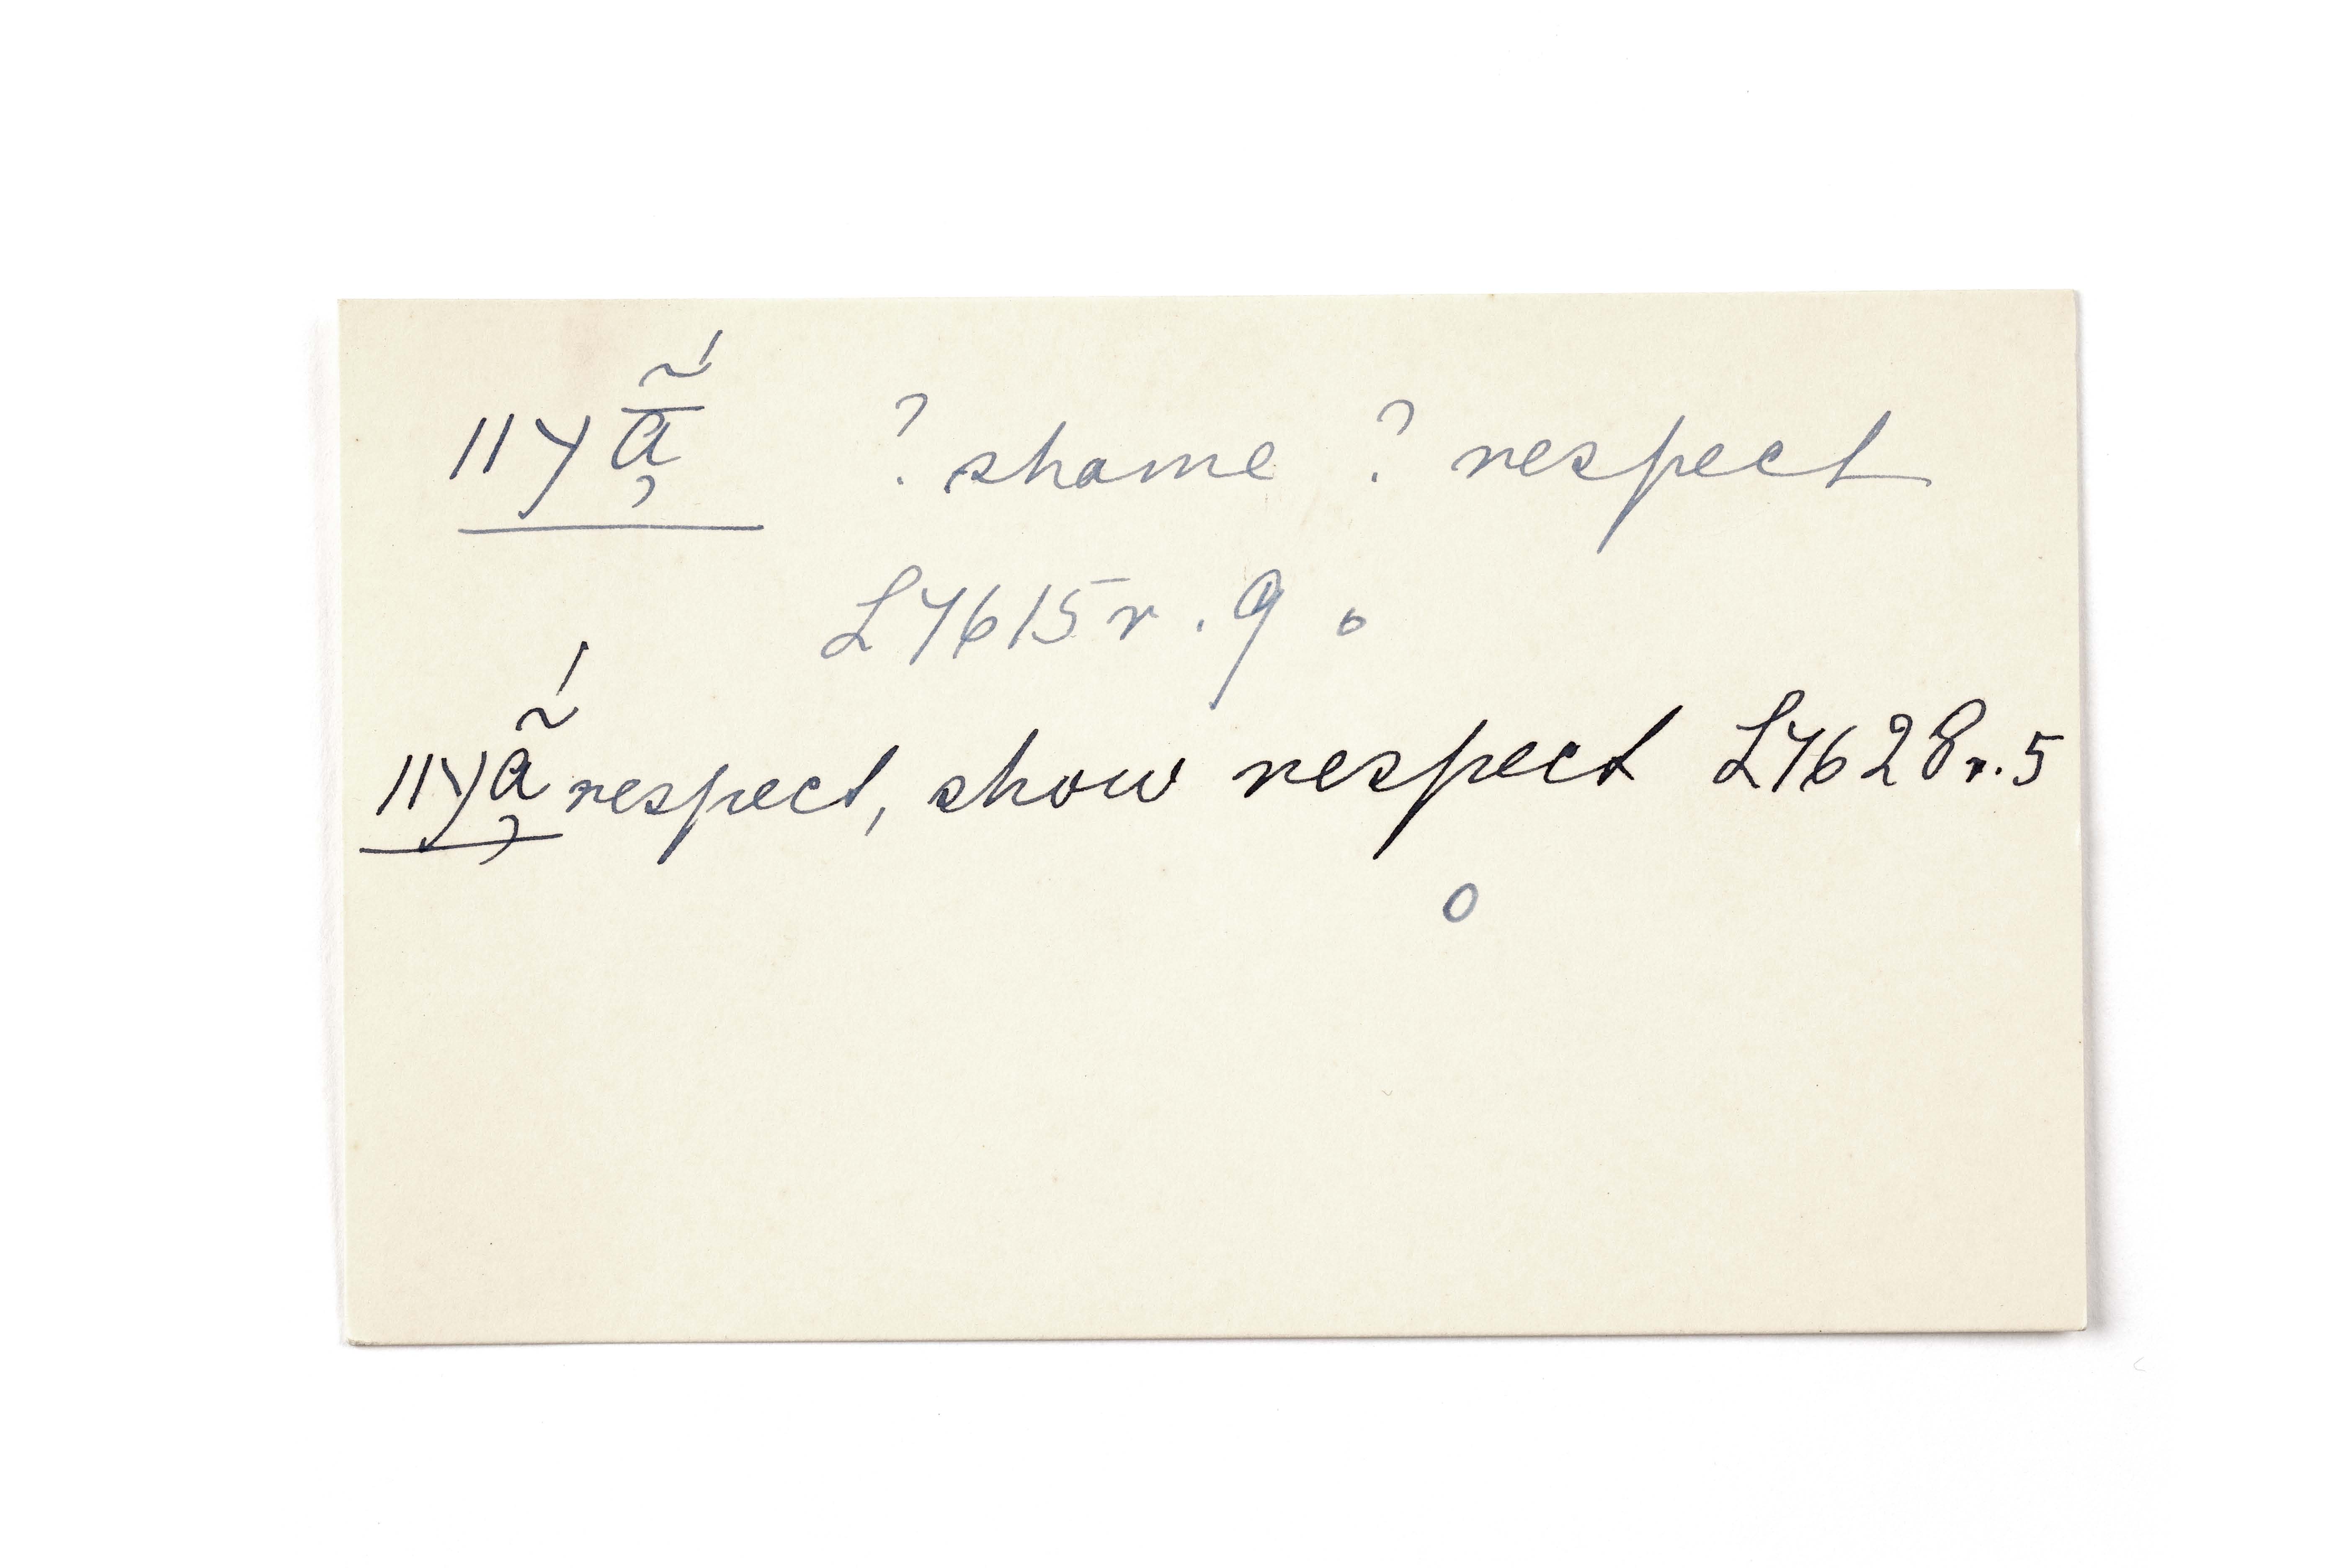 ǁyā̰̃́ ? shame ? respect
L7615r.9 o
ǁyã̰́ respect, show respect L7628r.5
o